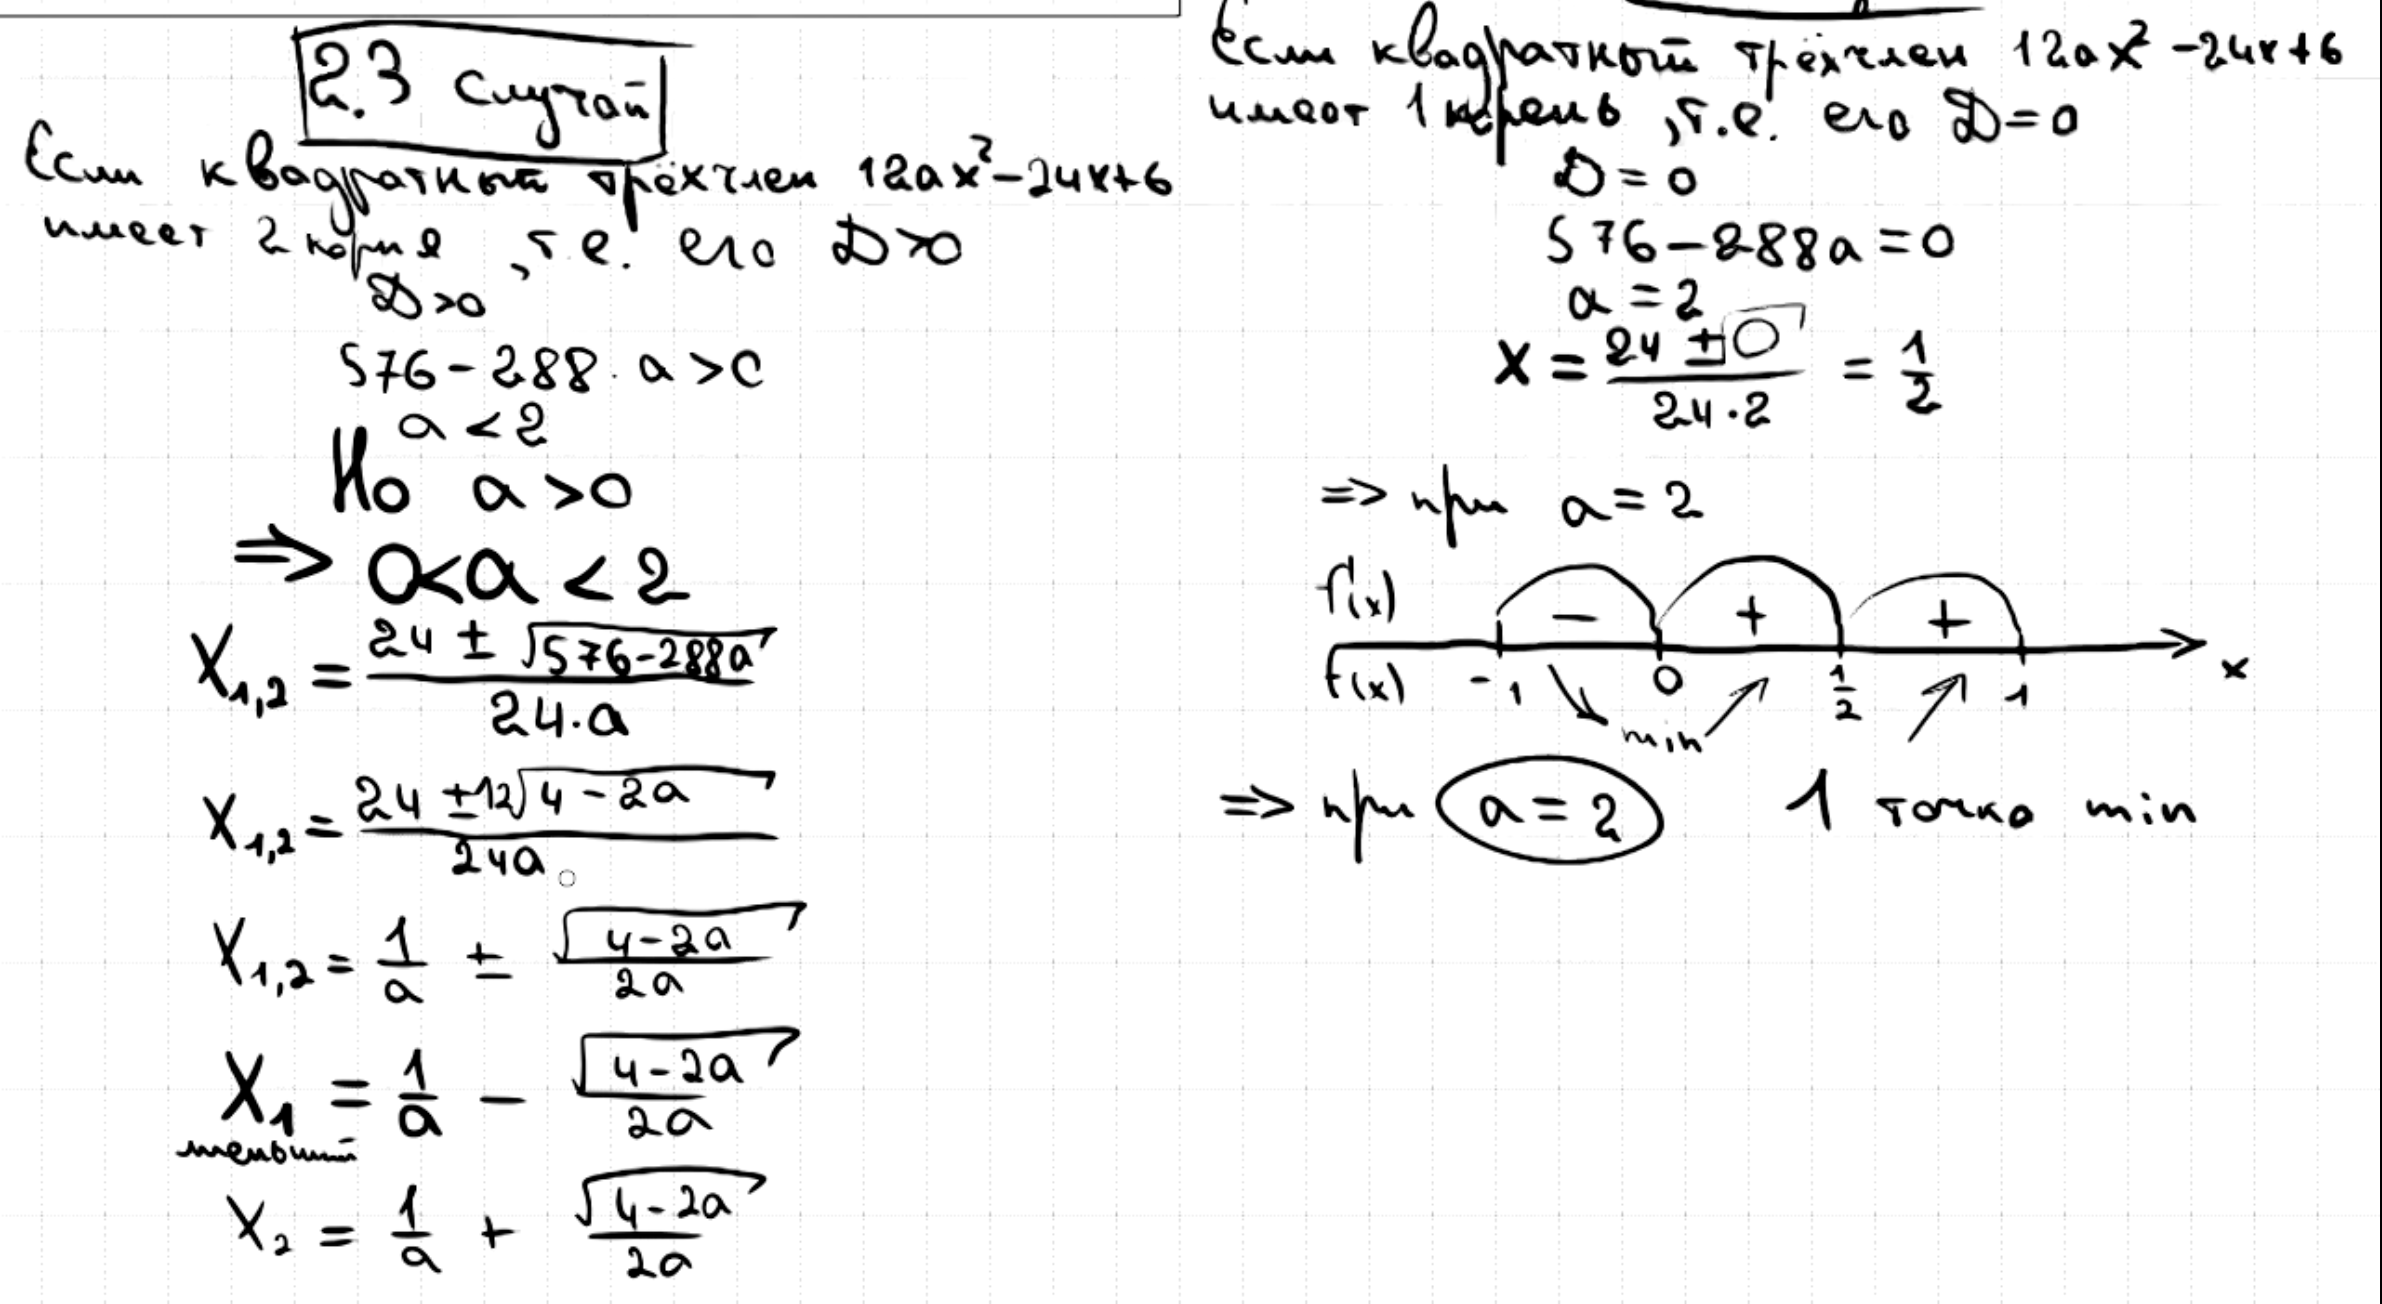 2.3 случай
Если квадратный трёхчлен 12ax²-24x+6
имеет 2 корня, т.е. его D>0
D>0
576-288·a>0
a<2
Но a>0
=> 0<a<2
X₁,₂ = (24 ± √(576-288a))/(24·a)
X₁,₂ = (24 ± 12√(4-2a))/(24a)
X₁,₂ = 1/a ± √(4-2a)/(2a)
X₁ = 1/a - √(4-2a)/(2a)
меньший
X₂ = 1/a + √(4-2a)/(2a)
Если квадратный трёхчлен 12ax²-24x+6
имеет 1 корень, т.е. его D=0
D=0
576-288a=0
a=2
X = (24 ± √0)/(24·2) = 1/2
=> при a=2
f'(x) - + +
f(x) -1 0 1/2 1 x
min
=> при a=2 1 точка min